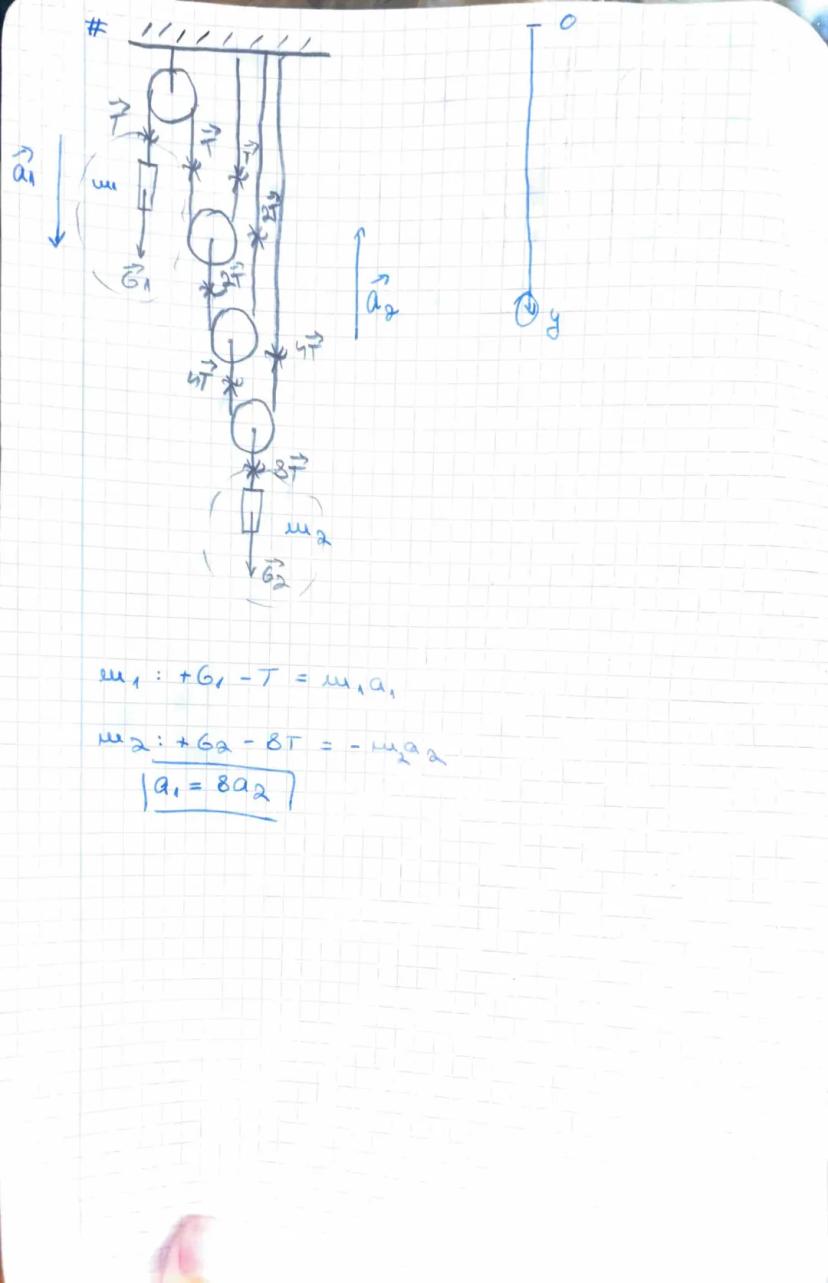 #
0
T⃗
T⃗
T⃗
a⃗₁
m₁
2T⃗
G⃗₁
2T⃗
a⃗₂
y
4T⃗
4T⃗
8T⃗
m₂
G⃗₂
m₁ : +G₁ - T = m₁a₁
m₂ : +G₂ - 8T = - m₂a₂
a₁ = 8a₂